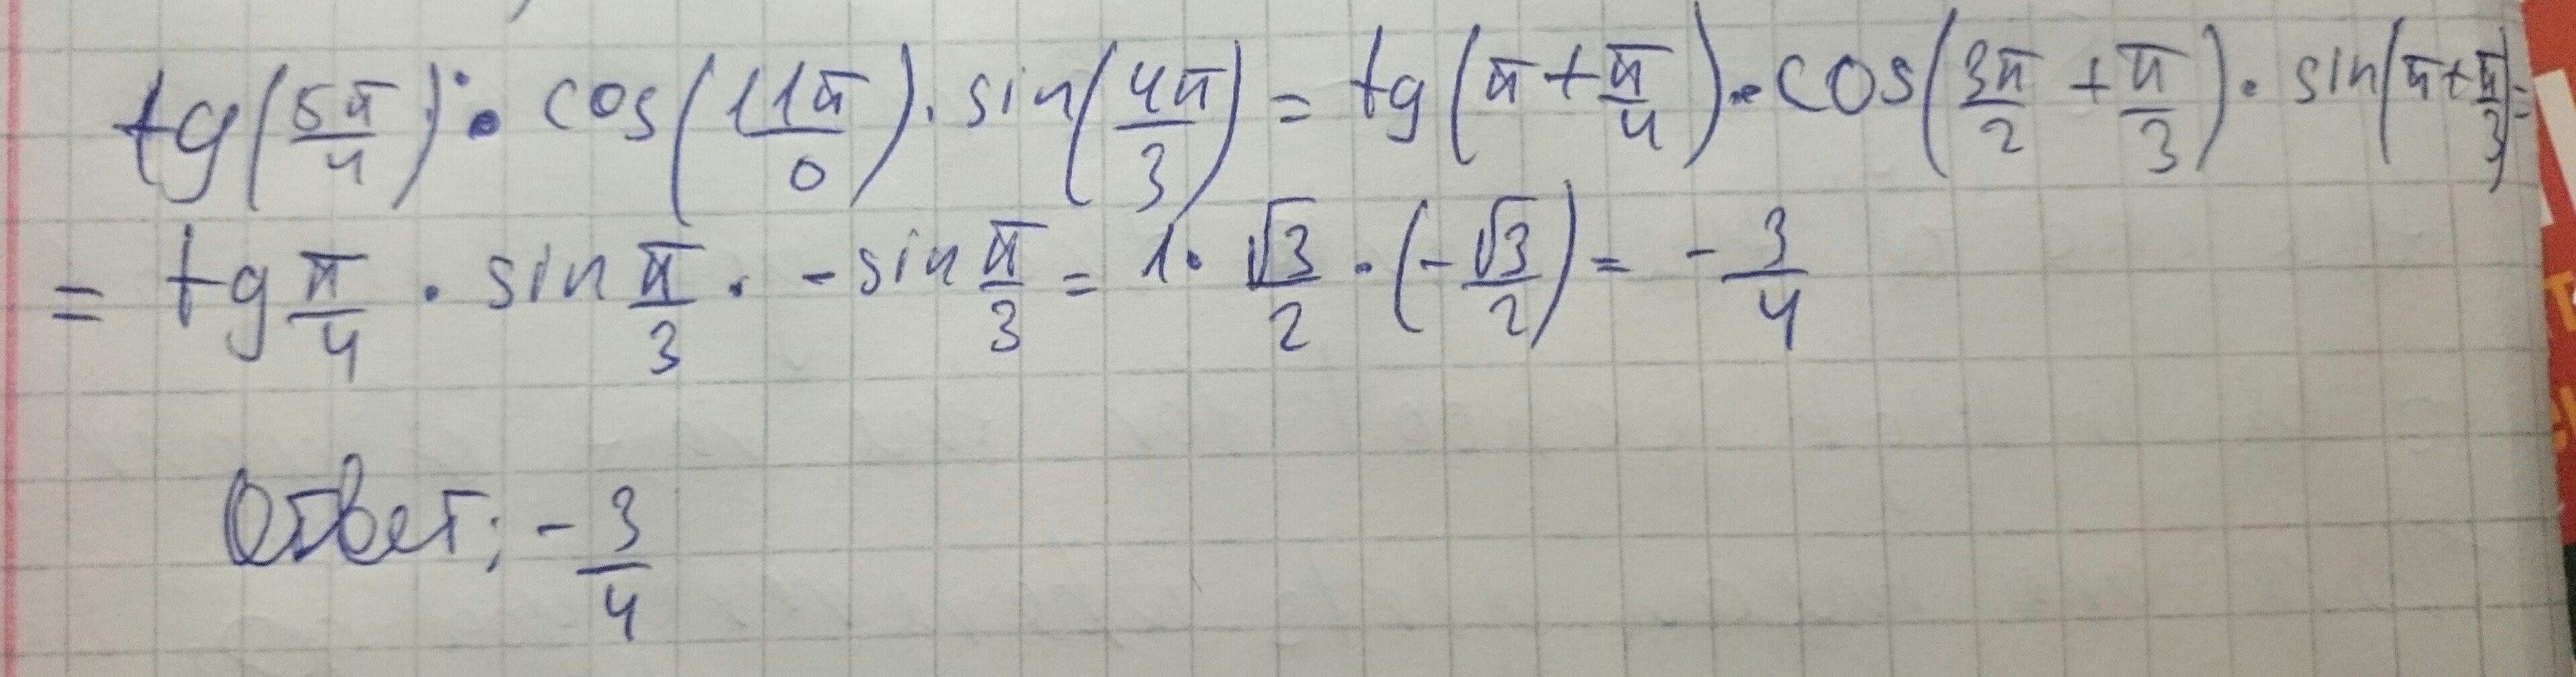 tg(5π/4) · cos(11π/0) · sin(4π/3) = tg(π + π/4) · cos(3π/2 + π/3) · sin(π + π/3) =
= tg π/4 · sin π/3 · - sin π/3 = 1 · √3/2 · (-√3/2) = - 3/4
Ответ: - 3/4